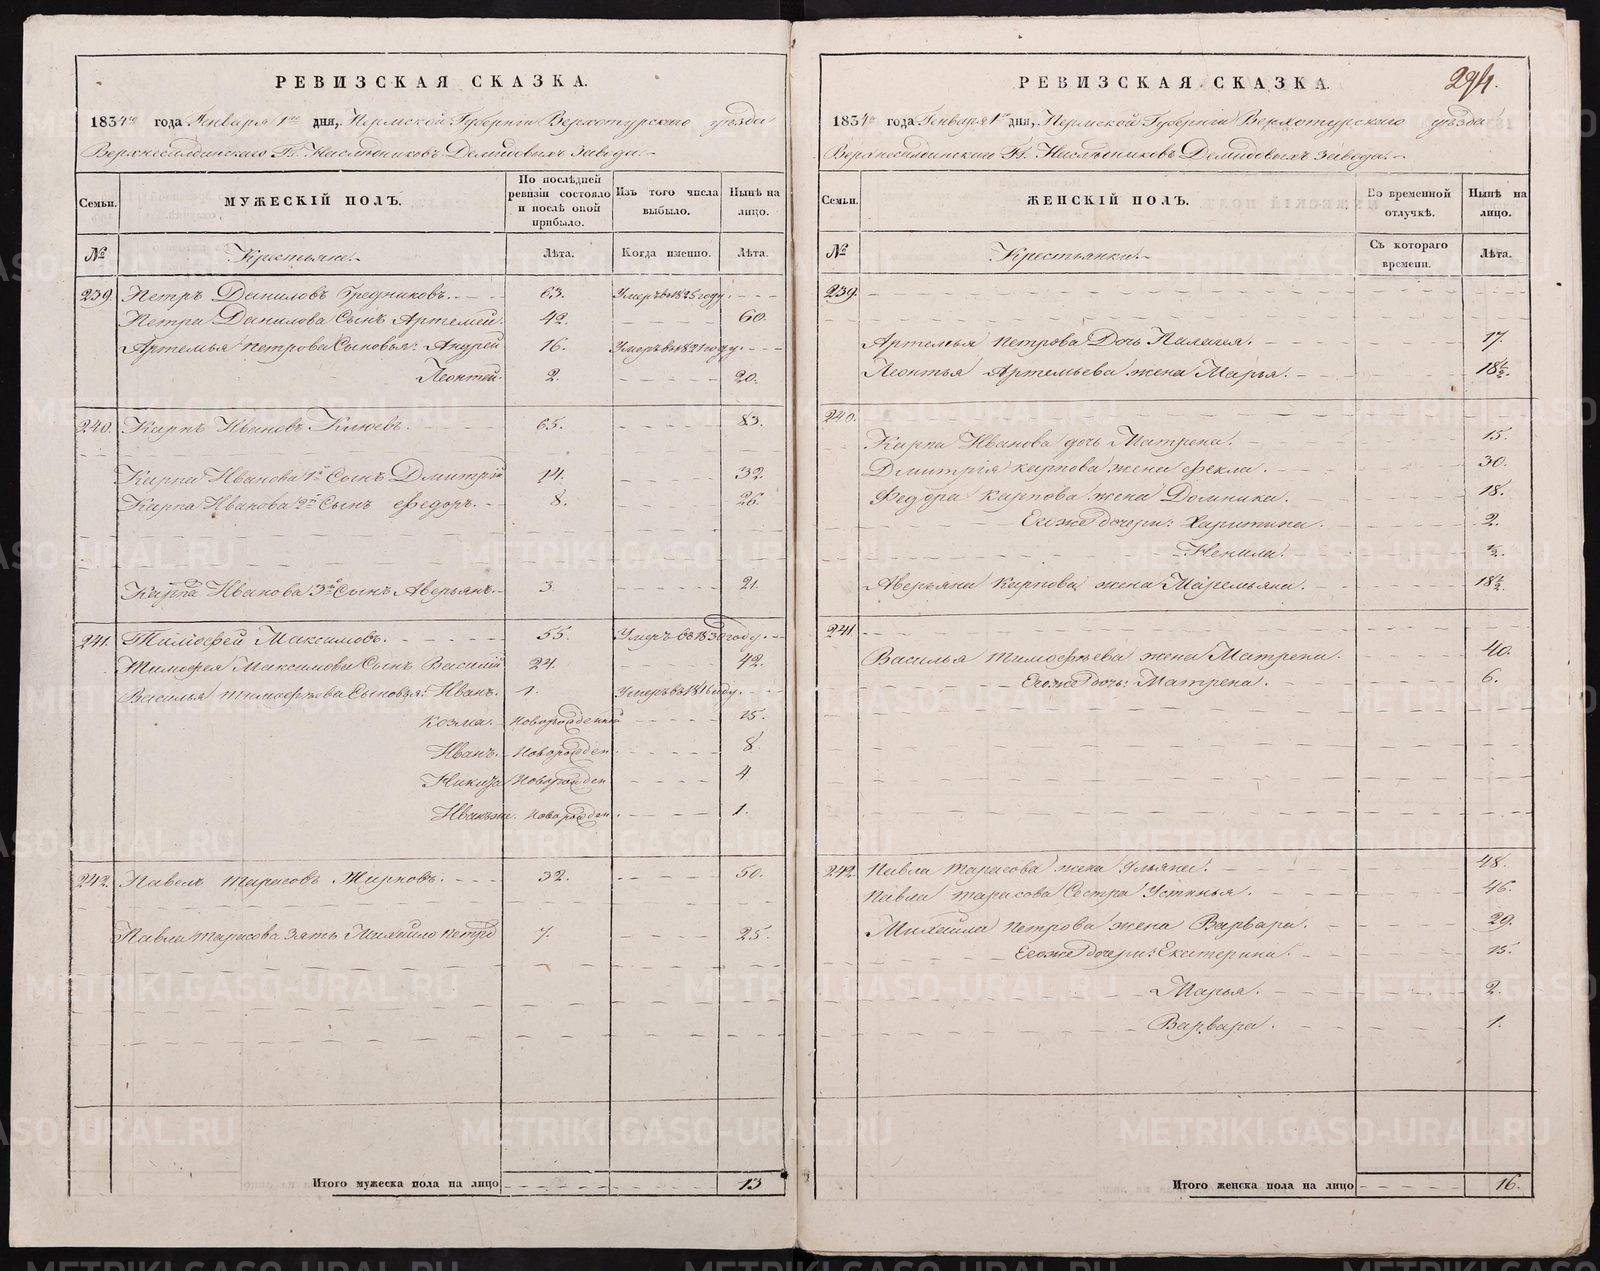 РЕВИЗСКАЯ СКАЗКА.
1834го года Генваря 1го дня, Пермской Губерніи Верхотурскаго уѣзда
Верхнесалдинскаго Гг. Наслѣдниковъ Демидовыхъ завода.
Семьи. МУЖЕСКІЙ ПОЛЪ. По послѣдней ревизіи состояло и послѣ оной прибыло. Изъ того числа выбыло. Нынѣ на лицо.
№ Крестьяне. Лѣта. Когда именно. Лѣта.
239. Петръ Даниловъ 63. Умеръ въ 1825 году.
Петра Данилова Сынъ Артемей. 42. 60.
Артемья Петрова Сыновья: Андрей 16. Умеръ въ 1821 году.
Леонтей. 2. 20.
240. Карпъ Ивановъ Клюевъ. 65. 83.
Карпа Иванова 1й Сынъ Дмитрій 14. 32.
Карпа Иванова 2й Сынъ Федоръ. 8. 26.
Карпа Иванова 3й Сынъ Аверьянъ. 3. 21.
241. Тимофей Максимовъ. 55. Умеръ въ 1830 году.
Тимофея Максимова Сынъ Василій 24. 42.
Василья Тимофѣева Сыновья: Иванъ. 1. Умеръ въ 1816 году.
Козма. Новорожденный 15.
Иванъ. Новорожден. 8.
Никита Новорожден 4
Иванъ же. Новорожден. 1.
242. Павелъ Тарасовъ Жирновъ. 32. 50.
Павла Тарасова Зять Михайло Петров 7. 25.
Итого мужеска пола на лицо 13
294.
РЕВИЗСКАЯ СКАЗКА.
1834го года Генваря 1го дня, Пермской Губерніи Верхотурскаго уѣзда
Верхнесалдинскаго Гг. Наслѣдниковъ Демидовыхъ завода.
Семьи. ЖЕНСКІЙ ПОЛЪ. Во временной отлучкѣ. Нынѣ на лицо.
№ Крестьянки. Съ котораго времени. Лѣта.
239.
Артемья Петрова Дочь Палагея. 17.
Леонтья Артемьева жена Марья. 18½.
240.
Карпа Иванова дочь Матрена. 15.
Дмитрія Карпова жена Фекла. 30.
Федора Карпова жена Домника. 18.
Его же дочери: Харитина. 2.
Ненила. ½.
Аверьяна Карпова жена Маремьяна. 18½.
241.
Василья Тимофѣева жена Матрена. 40.
Его же дочь: Матрена. 6.
242. Павла Тарасова жена Ульяна. 48.
Павла Тарасова Сестра Устинья. 46.
Михайла Петрова жена Варвара. 29.
Его же дочери: Екатерина. 15.
Марья. 2.
Варвара. 1.
Итого женска пола на лицо 16.
METRIKI.GASO-URAL.RU